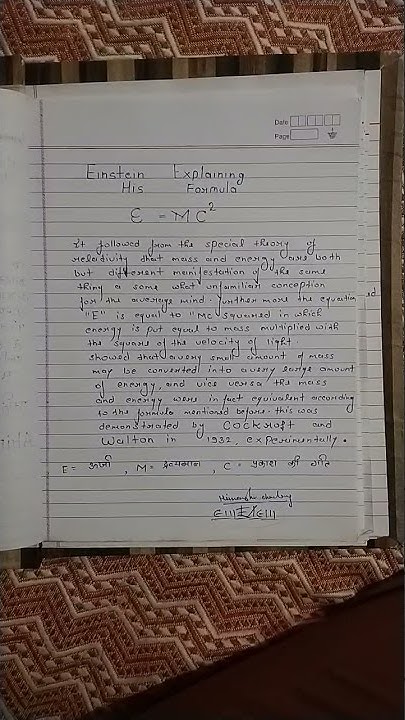 Date
Page
Einstein Explaining
His Formula
E = MC²
it followed from the special theory of
relativity that mass and energy are both
but different manifestation of the same
thing a some what unfamiliar conception
for the average mind. Further more the equation
"E" is equal to "MC squared in which
energy is put equal to mass multiplied with
the square of the velocity of light.
showed that a very small amount of mass
may be converted into a very large amount
of energy, and vice versa the mass
and energy were in fact equivalent according
to the formula mentioned before. this was
demonstrated by Cockroft and
Walton in 1932, experimentally.
E = ऊर्जा , M = द्रव्यमान , C = प्रकाश की गति